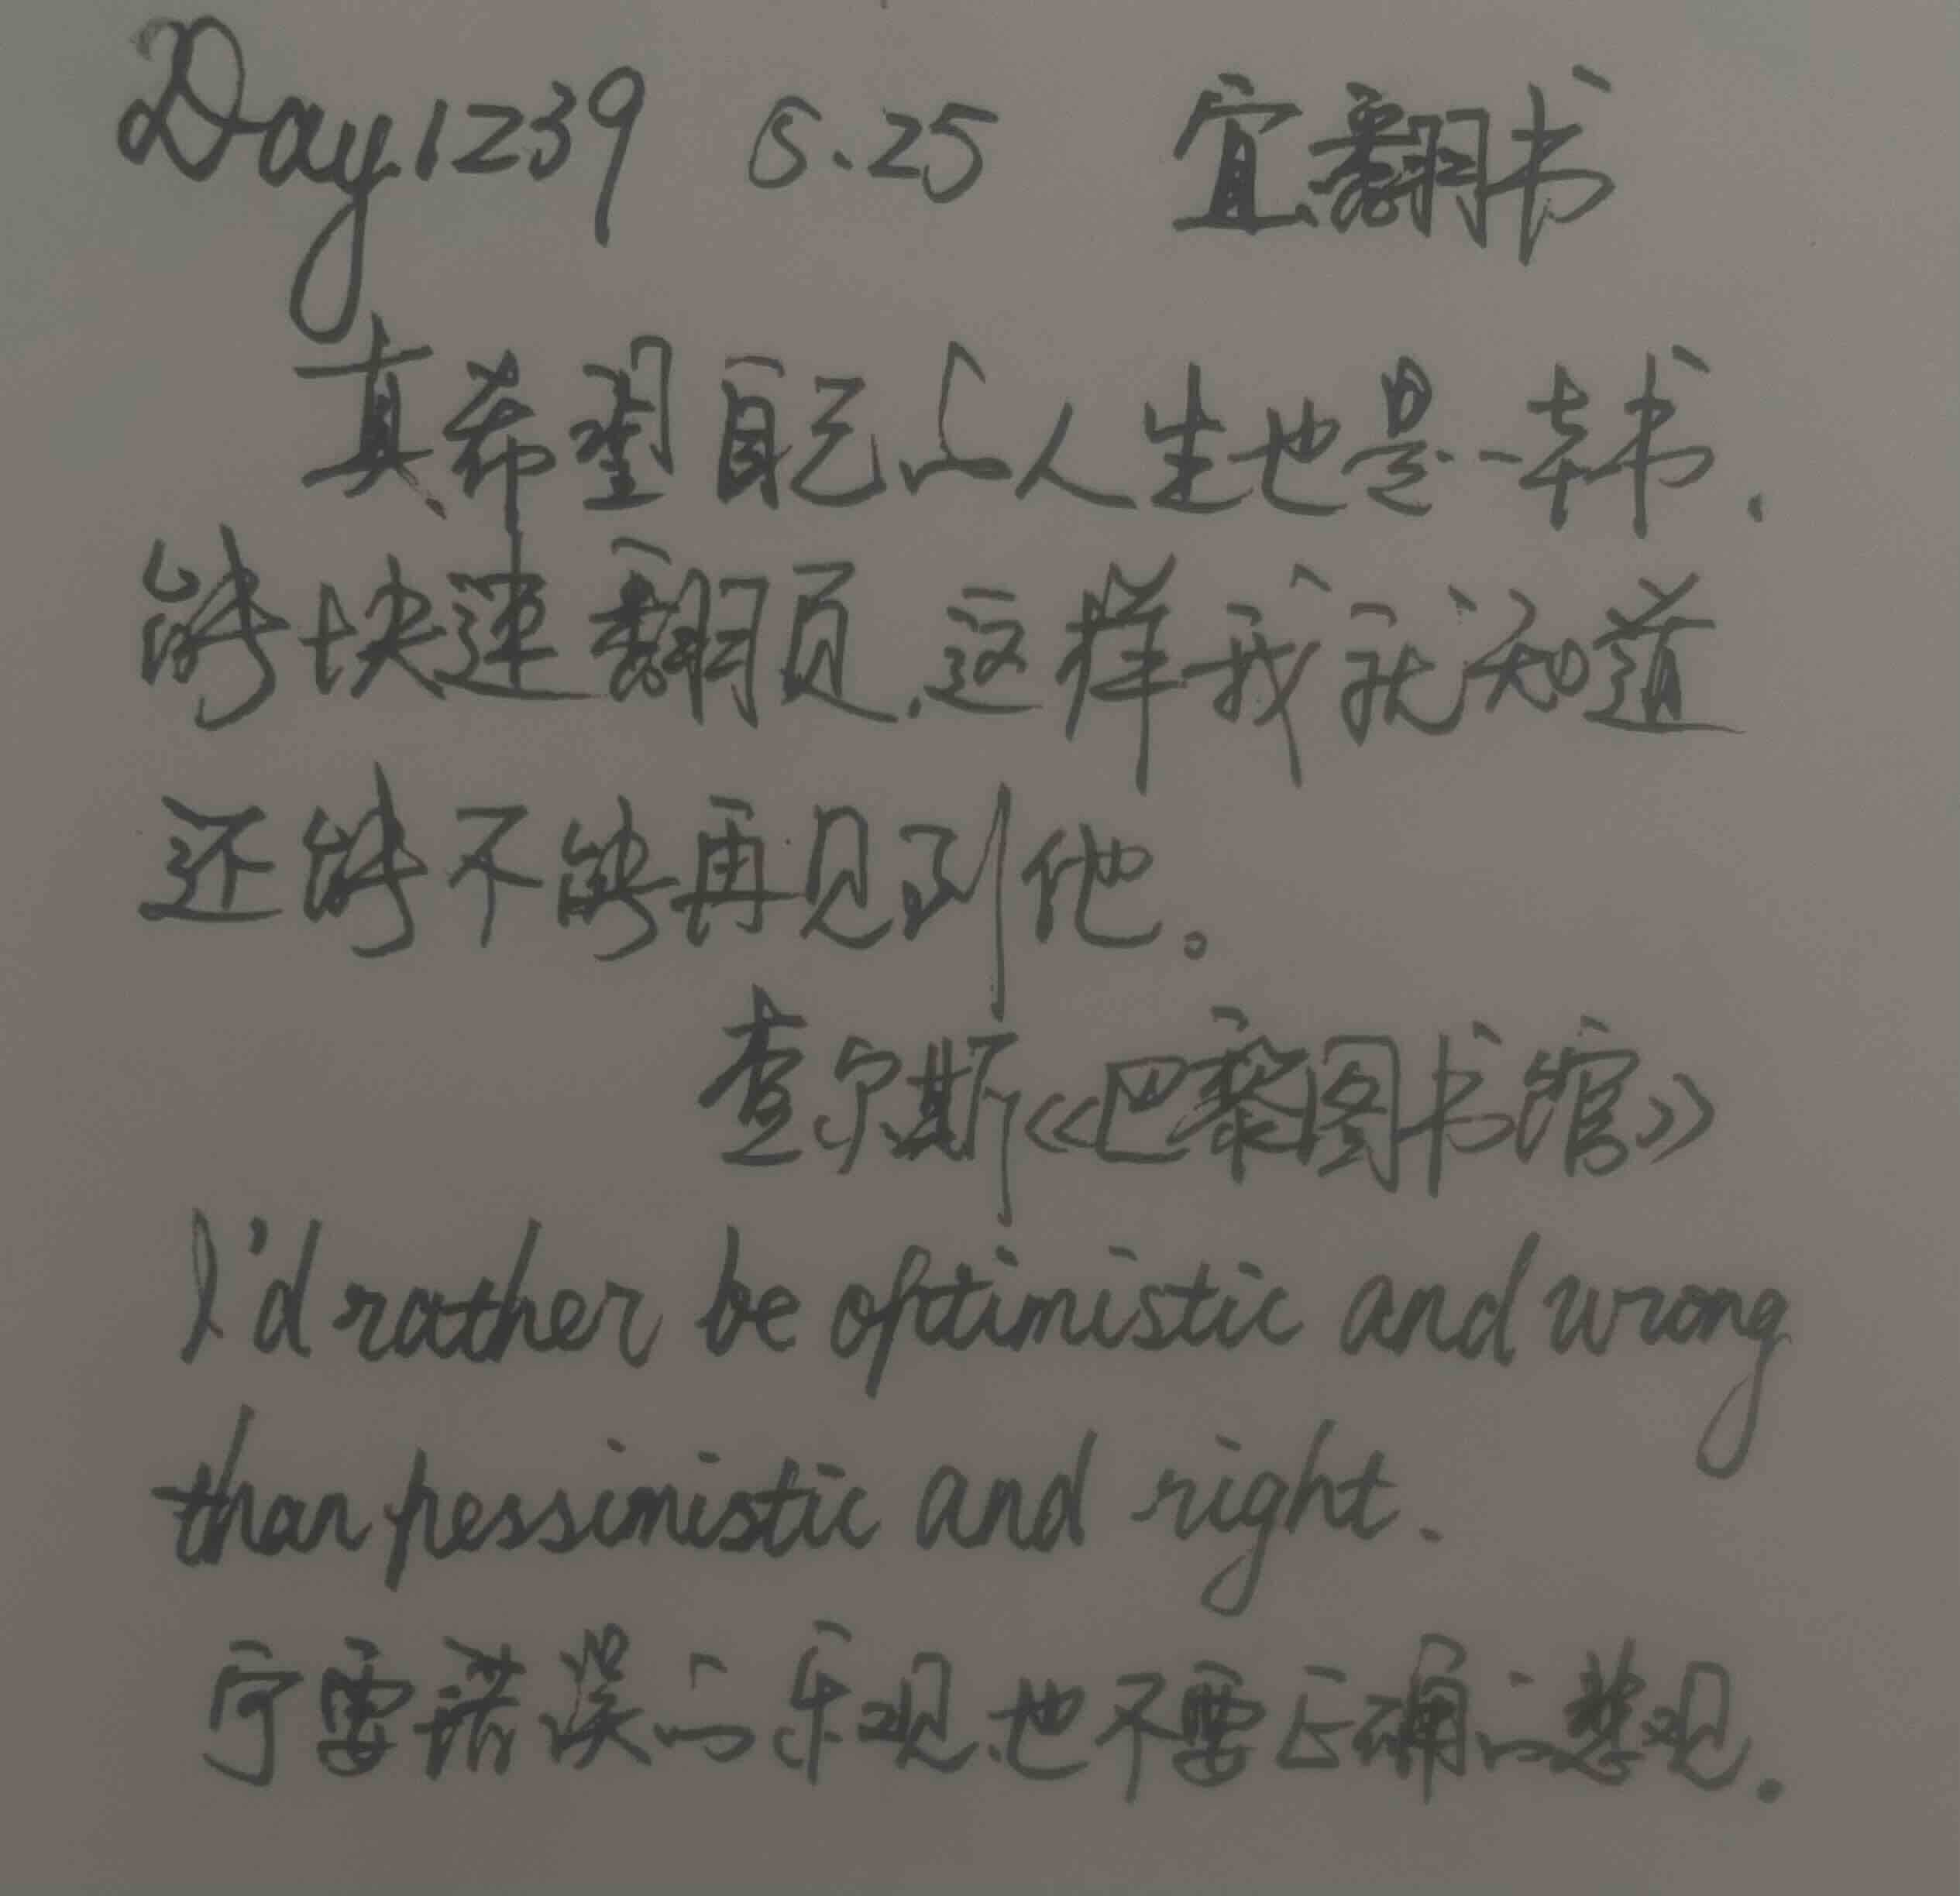 Day1239 5.25 宜翻书
真希望自己的人生也是一本书，
能快速翻页，这样我就知道
还能不能再见到他。
查尔斯《巴黎图书馆》
I'd rather be optimistic and wrong
than pessimistic and right.
宁要错误的乐观，也不要正确的悲观。